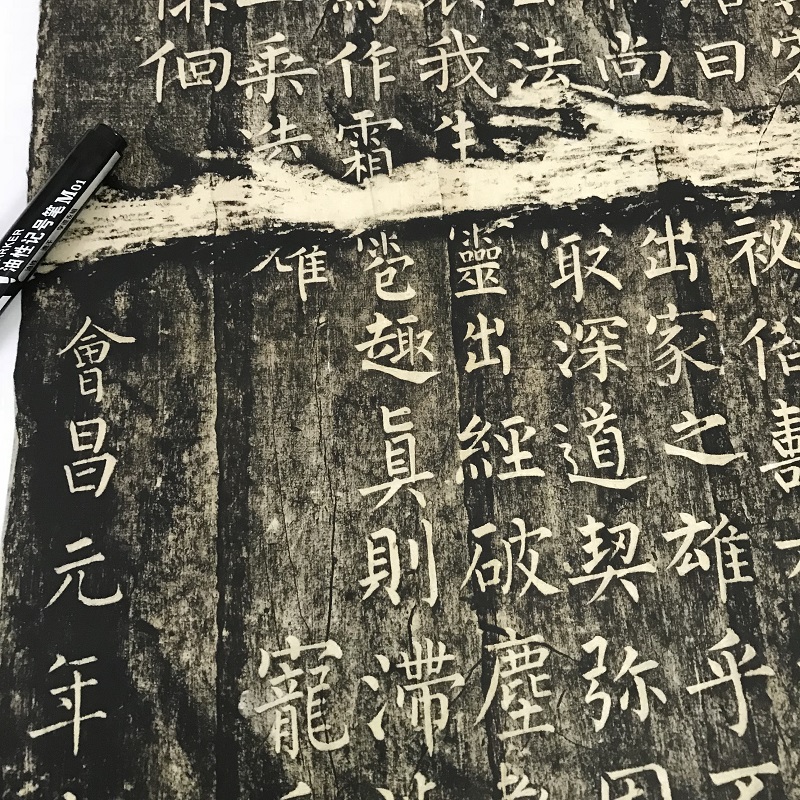 曰祕俗壽
尚出家之雄乎
法取深道契弥
我生靈出經破塵
作霜卷趣眞則滯
乘造唯寵
徊
會昌元年
MARKER
油性记号笔 M01